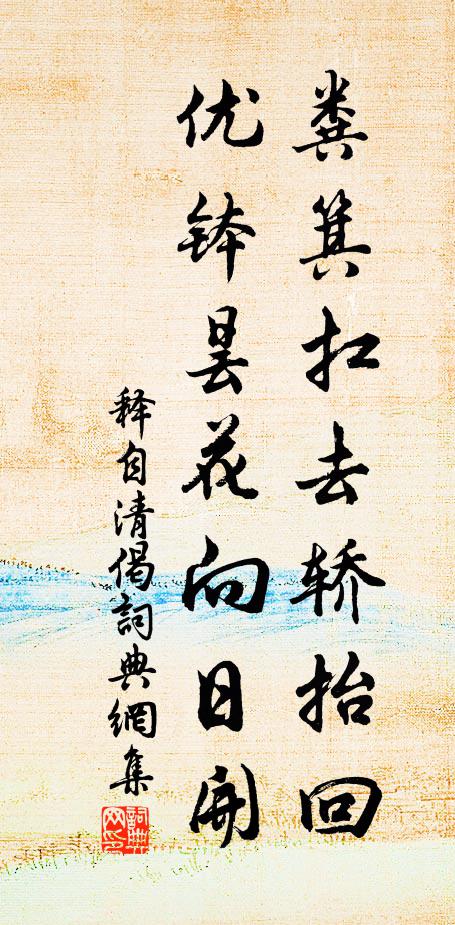 粪箕扛去轿抬回
优钵昙花向日开
释自清偈詞典網集
詞典網印